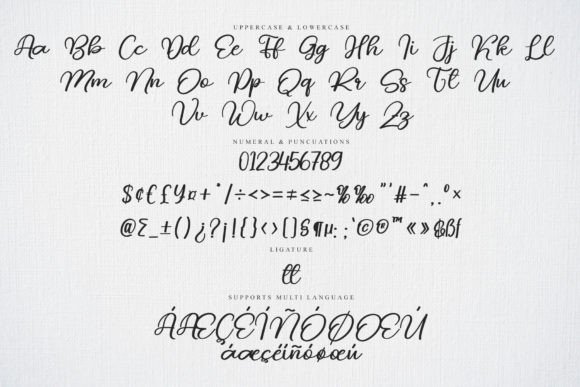 UPPERCASE & LOWERCASE
Aa Bb Cc Dd Ee Ff Gg Hh Ii Jj Kk Ll
Mm Nn Oo Pp Qq Rr Ss Tt Uu
Vv Ww Xx Yy Zz
NUMERAL & PUNCUATIONS
0123456789
$¢€£¥¤+*/÷<>=≠≤≥~%‰"'#-^,.°×
@&_±()¿?¡!{}‹›[]§¶µ:;'©®™«»$ßf
LIGATURE
tt
SUPPORTS MULTI LANGUAGE
ÁÆÇÉÍÑÓØŒÚ
áæçéíñóøœú